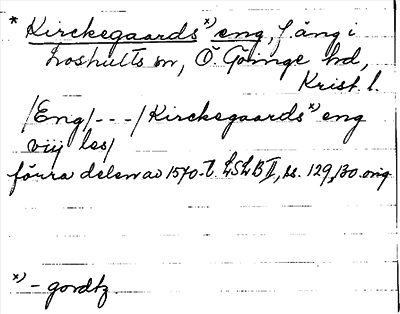 * Kirckegaards x) eng, f. äng i
Loshults sn, Ö. Göinge hd,
Krist. l.
/Eng/---/Kirckegaards x) eng
viij les/
förra delen av 1570-t. LSLB II, ss. 129, 130. orig
x) - gordtz